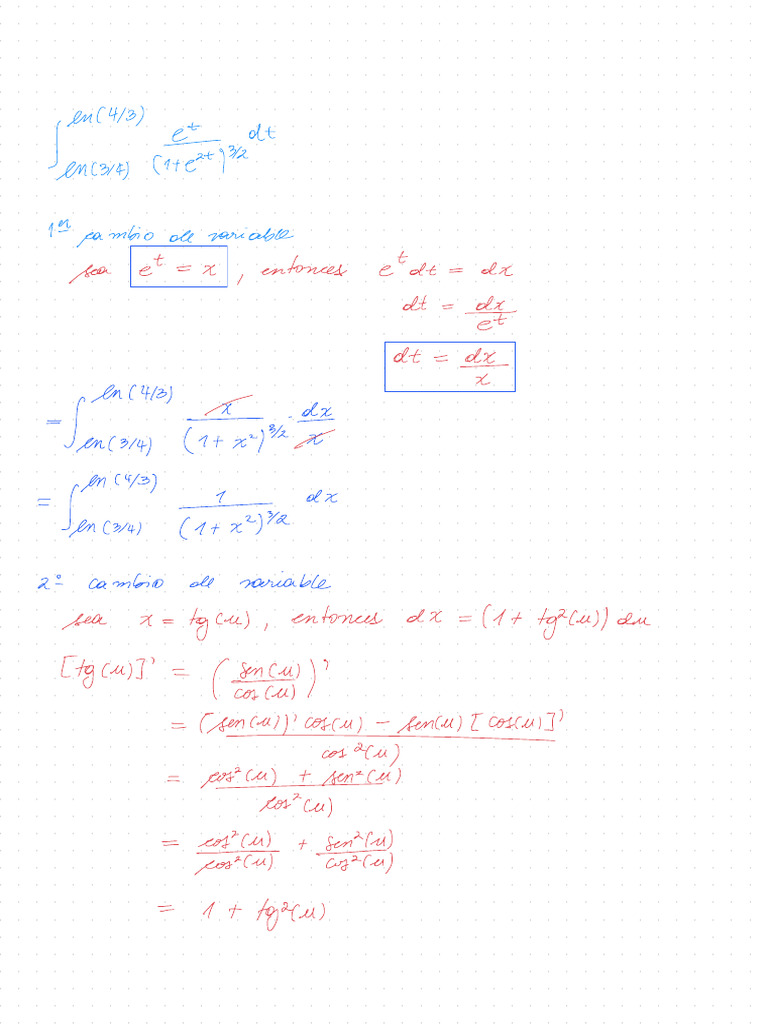 ∫_{ln(3/4)}^{ln(4/3)} e^t/(1+e^{2t})^{3/2} dt
1er cambio de variable
sea e^t = x, entonces e^t dt = dx
dt = dx/e^t
dt = dx/x
= ∫_{ln(3/4)}^{ln(4/3)} x/(1+x²)^{3/2} · dx/x
= ∫_{ln(3/4)}^{ln(4/3)} 1/(1+x²)^{3/2} dx
2º cambio de variable
sea x = tg(u), entonces dx = (1 + tg²(u)) du
[tg(u)]' = (sen(u)/cos(u))'
= ((sen(u))' cos(u) − sen(u) [cos(u)]')/cos²(u)
= (cos²(u) + sen²(u))/cos²(u)
= cos²(u)/cos²(u) + sen²(u)/cos²(u)
= 1 + tg²(u)